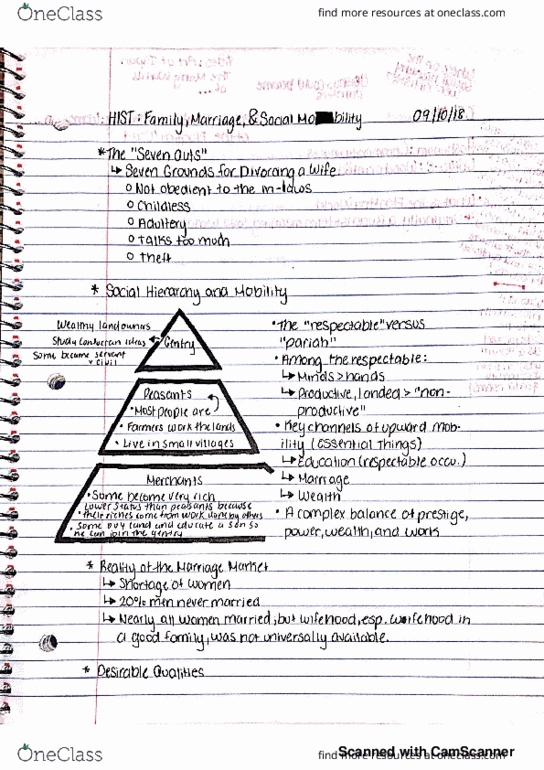 OneClass
find more resources at oneclass.com
HIST: Family, Marriage, & Social Mobility
09/10/18
*The "Seven Outs"
↳ Seven Grounds for Divorcing a Wife
o Not obedient to the in-laws
o Childless
o Adultery
o Talks too much
o Theft
* Social Hierarchy and Mobility
Wealthy landowners
Study Confucian ideas
Some become servant
civil
Gentry
Peasants
•Most people are
• Farmers work the lands
• Live in small villages
Merchants
• Some become very rich
Lower status than peasants because
their riches come from work done by others
• Some buy land and educate a son so
he can join the gentry
•The "respectable" versus
"pariah"
•Among the respectable:
↳ Minds>hands
↳ Productive, landed > "non-
productive"
• Key channels of upward mob-
ility (essential things)
↳ Education (respectable occu.)
↳ Marriage
↳ Wealth
• A complex balance of prestige,
power, wealth, and work
* Reality of the Marriage Market
↳ Shortage of women
↳ 20% men never married
↳ Nearly all women married, but wifehood, esp. wifehood in
a good family, was not universally available.
* Desirable Qualities
OneClass
find more resources at oneclass.com
Scanned with CamScanner